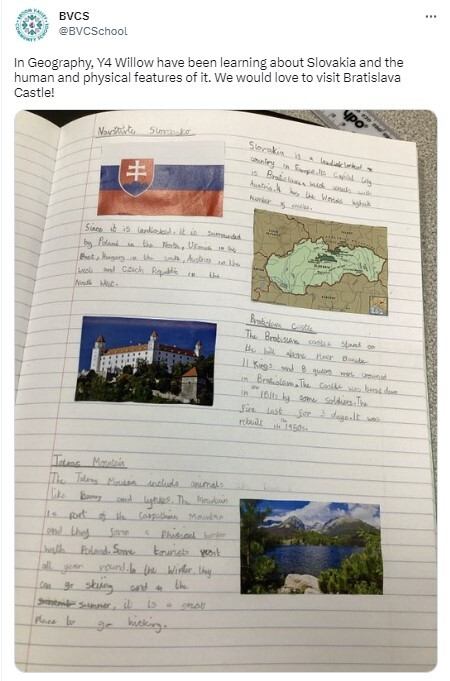 BVCS
@BVCSchool
In Geography, Y4 Willow have been learning about Slovakia and the
human and physical features of it. We would love to visit Bratislava
Castle!
Slovakia is a landlocked
country in Europe. Its Capital City
is Bratislava, with
Austria. It has the Worlds highest
number of
Since it is landlocked, it is surrounded
by Poland in the North, Ukraine in the
East, Hungary in the south, Austria in the
West and Czech Republic in the
North West.
Bratislava Castle
The Bratislava castle stand on
the hill above River Danube.
11 Kings and 8 queens were crowned
in Bratislava. The Castle was burnt down
in the 1811 by some soldiers. The
fire last for 3 days. It was
rebuilt in the 1950s.
Mountain
The Mountain include animals
like and The Mountain
is part of the Carpathian Mountain
and they form a Physical border
with Poland. Some tourists visit
all year round. In the Winter, they
can go skiing and in the
summer, it is a great
Place to go hicking.